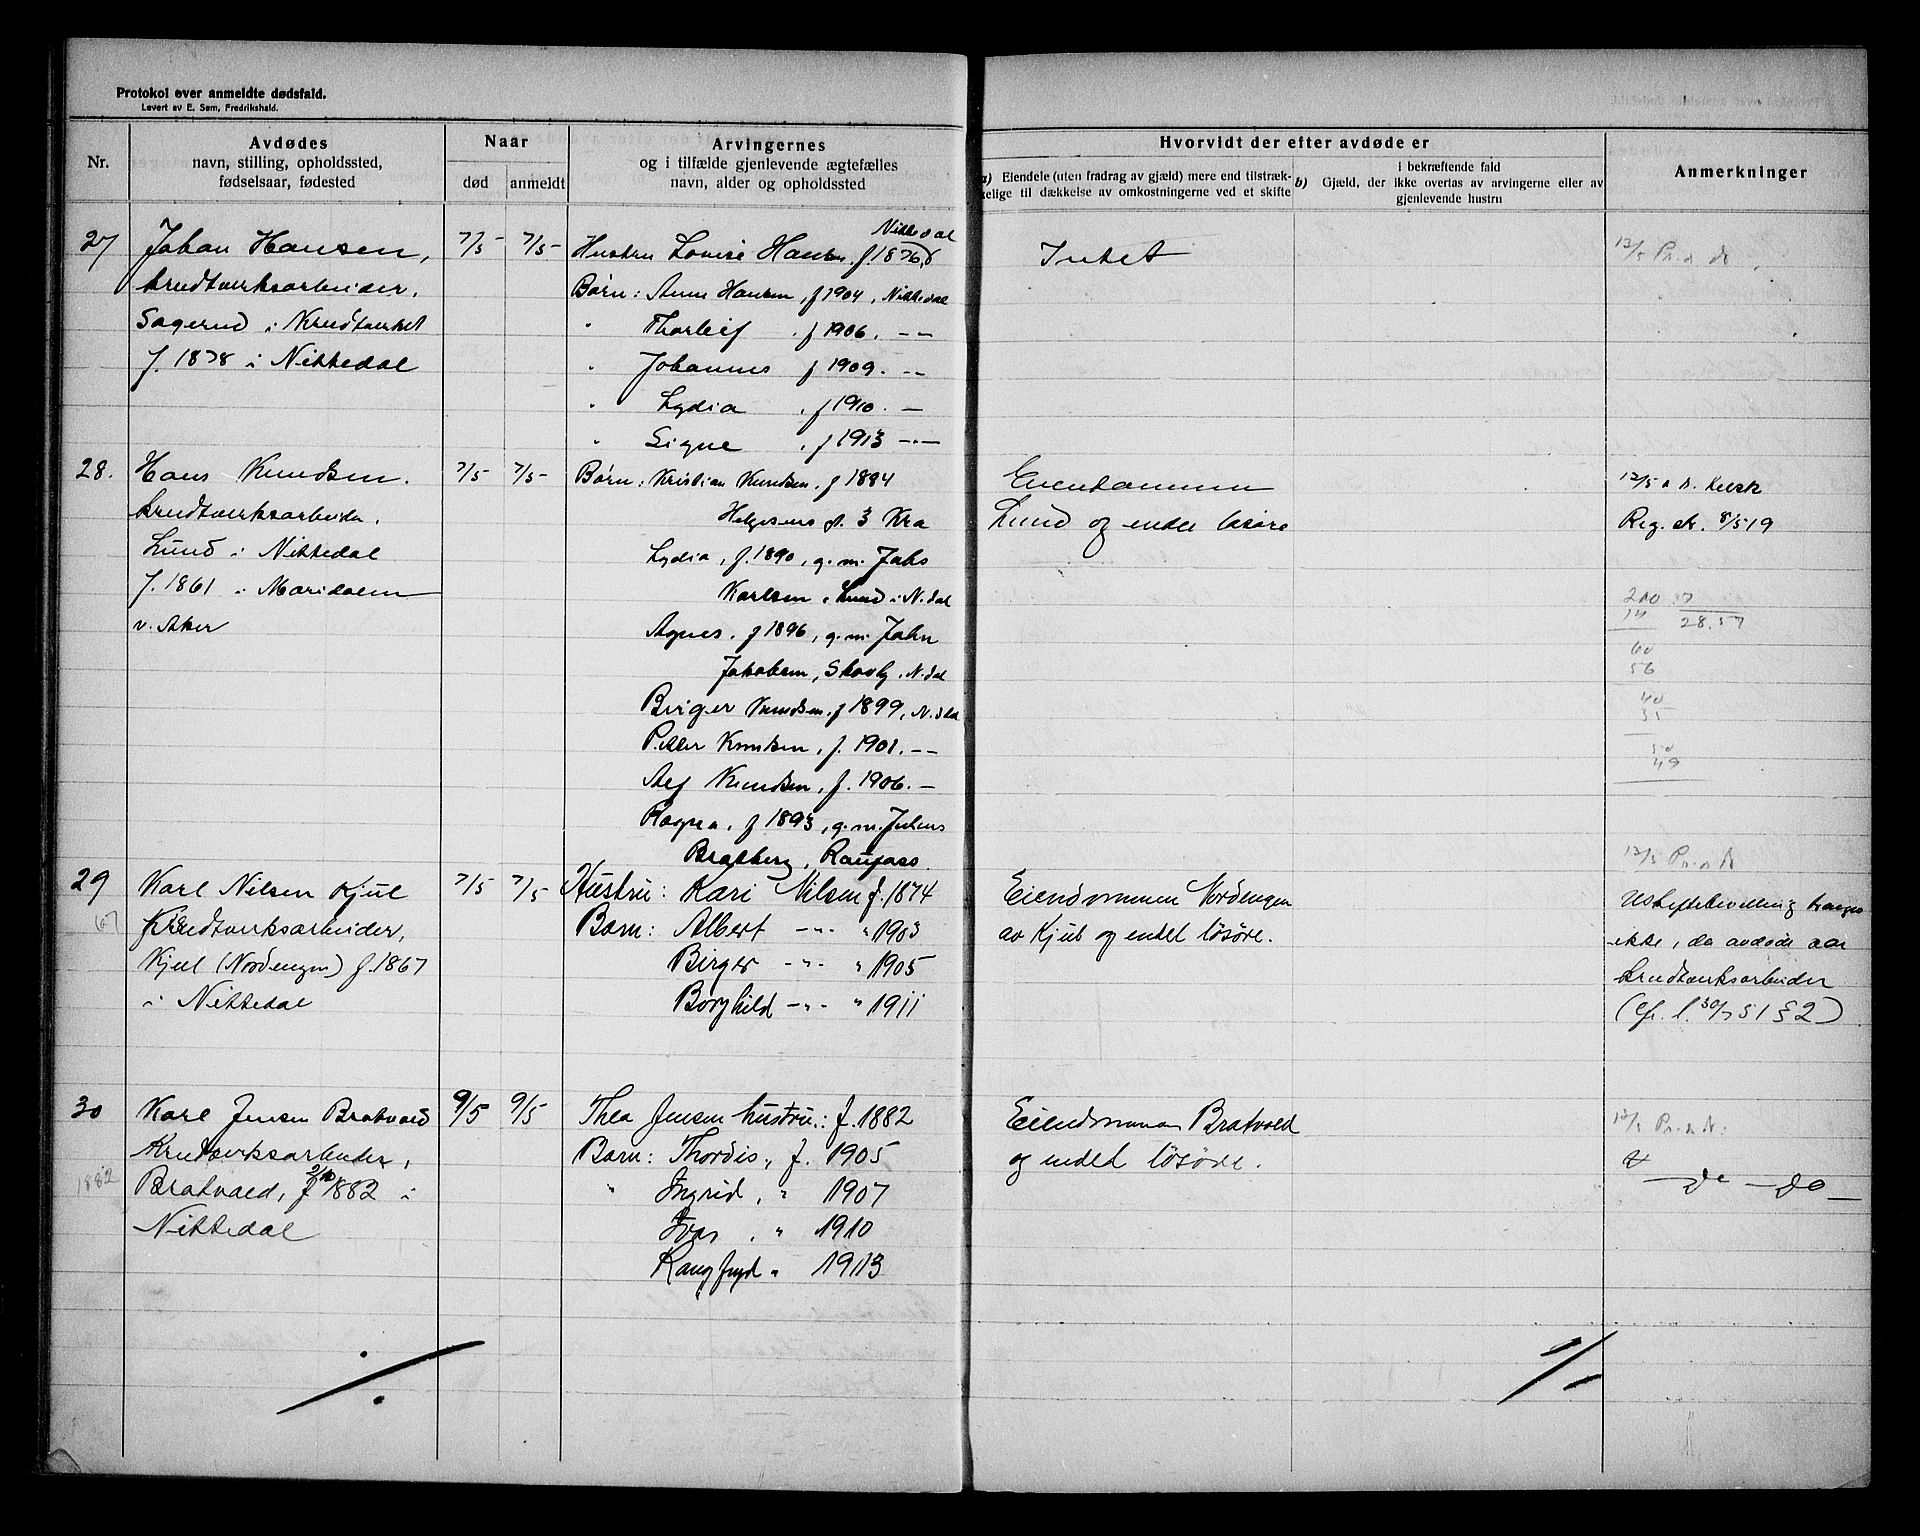 Protokol over anmeldte dødsfald.
Levert av E. Sem, Fredrikshald.
Nr.
Avdødes
navn, stilling, opholdssted,
fødselsaar, fødested
Naar
død
anmeldt
Arvingernes
og i tilfælde gjenlevende ægtefælles
navn, alder og opholdssted
Hvorvidt der efter avdøde er
a) Eiendele (uten fradrag av gjæld) mere end tilstræk-
kelige til dækkelse av omkostningerne ved et skifte
b) Gjæld, der i bekræftende fald
ikke overtas av arvingerne eller av
gjenlevende hustru
Anmerkninger
27
Johan Hansen,
krudtverksarbeider,
Sagerud i Krudtverket
f. 1878 i Nittedal
7/5
7/5
Nittedal
Hustru Lovise Hansen, f. 1876
Børn: Anne Hansen, f 1904, Nittedal
" Thorleif . f 1906. --
" Johannes f 1909. --
" Lydia . f 1910. —
" Signe . f 1913 —
Intet
13/5
28.
Hans Knudsen.
krudtverksarbeider.
Lund i Nittedal
f. 1861 i Maridalen
v. Aker
7/5
7/5
Børn: Kristian Knudsen. f 1884
Helgesens gt. 3 Kra
Lydia, f. 1890, g. m. Johs
Karlsen, Lund i N.dal
Agnes. f 1896, g. m. John
Jakobsen, Skovly, N.dal
Birger Knudsen, f 1899, N.dal
Petter Knudsen, f. 1901. --
Alf Knudsen, f. 1906. —
Ragna, f 1893, g. m. Julius
Bratberg, Raufoss
Eiendommen
Lund og endel løsøre
12/5
Reg. sk. 8/5 19
200 : 7
14 28.57
60
56
40
35
50
49
29
67
Karl Nilsen Kjul
Krudtverksarbeider,
Kjul (Nordengen) f. 1867
i Nittedal
7/5
7/5
Hustru: Kari Nilsen f. 1874
Barn: Albert -"- " 1903
Birger -"- " 1905
Borghild -"- " 1911
Eiendommen Nordengen
av Kjul og endel løsøre.
12/5
Uskiftebevilling trænges
ikke, da avdøde var
krudtverksarbeider
(Cfr. l. 30/7 51 § 2)
30
1882
Karl Jensen Bratvold
Krudtverksarbeider,
Bratvold, f 2/10 1882 i
Nittedal
9/5
9/5
Thea Jensen hustru: f. 1882
Barn: Thordis, f. 1905
" Ingrid, " 1907
Ivar , " 1910
Rangfryd " 1913
Eiendommen Bratvold
og endel løsøre.
— do — do —